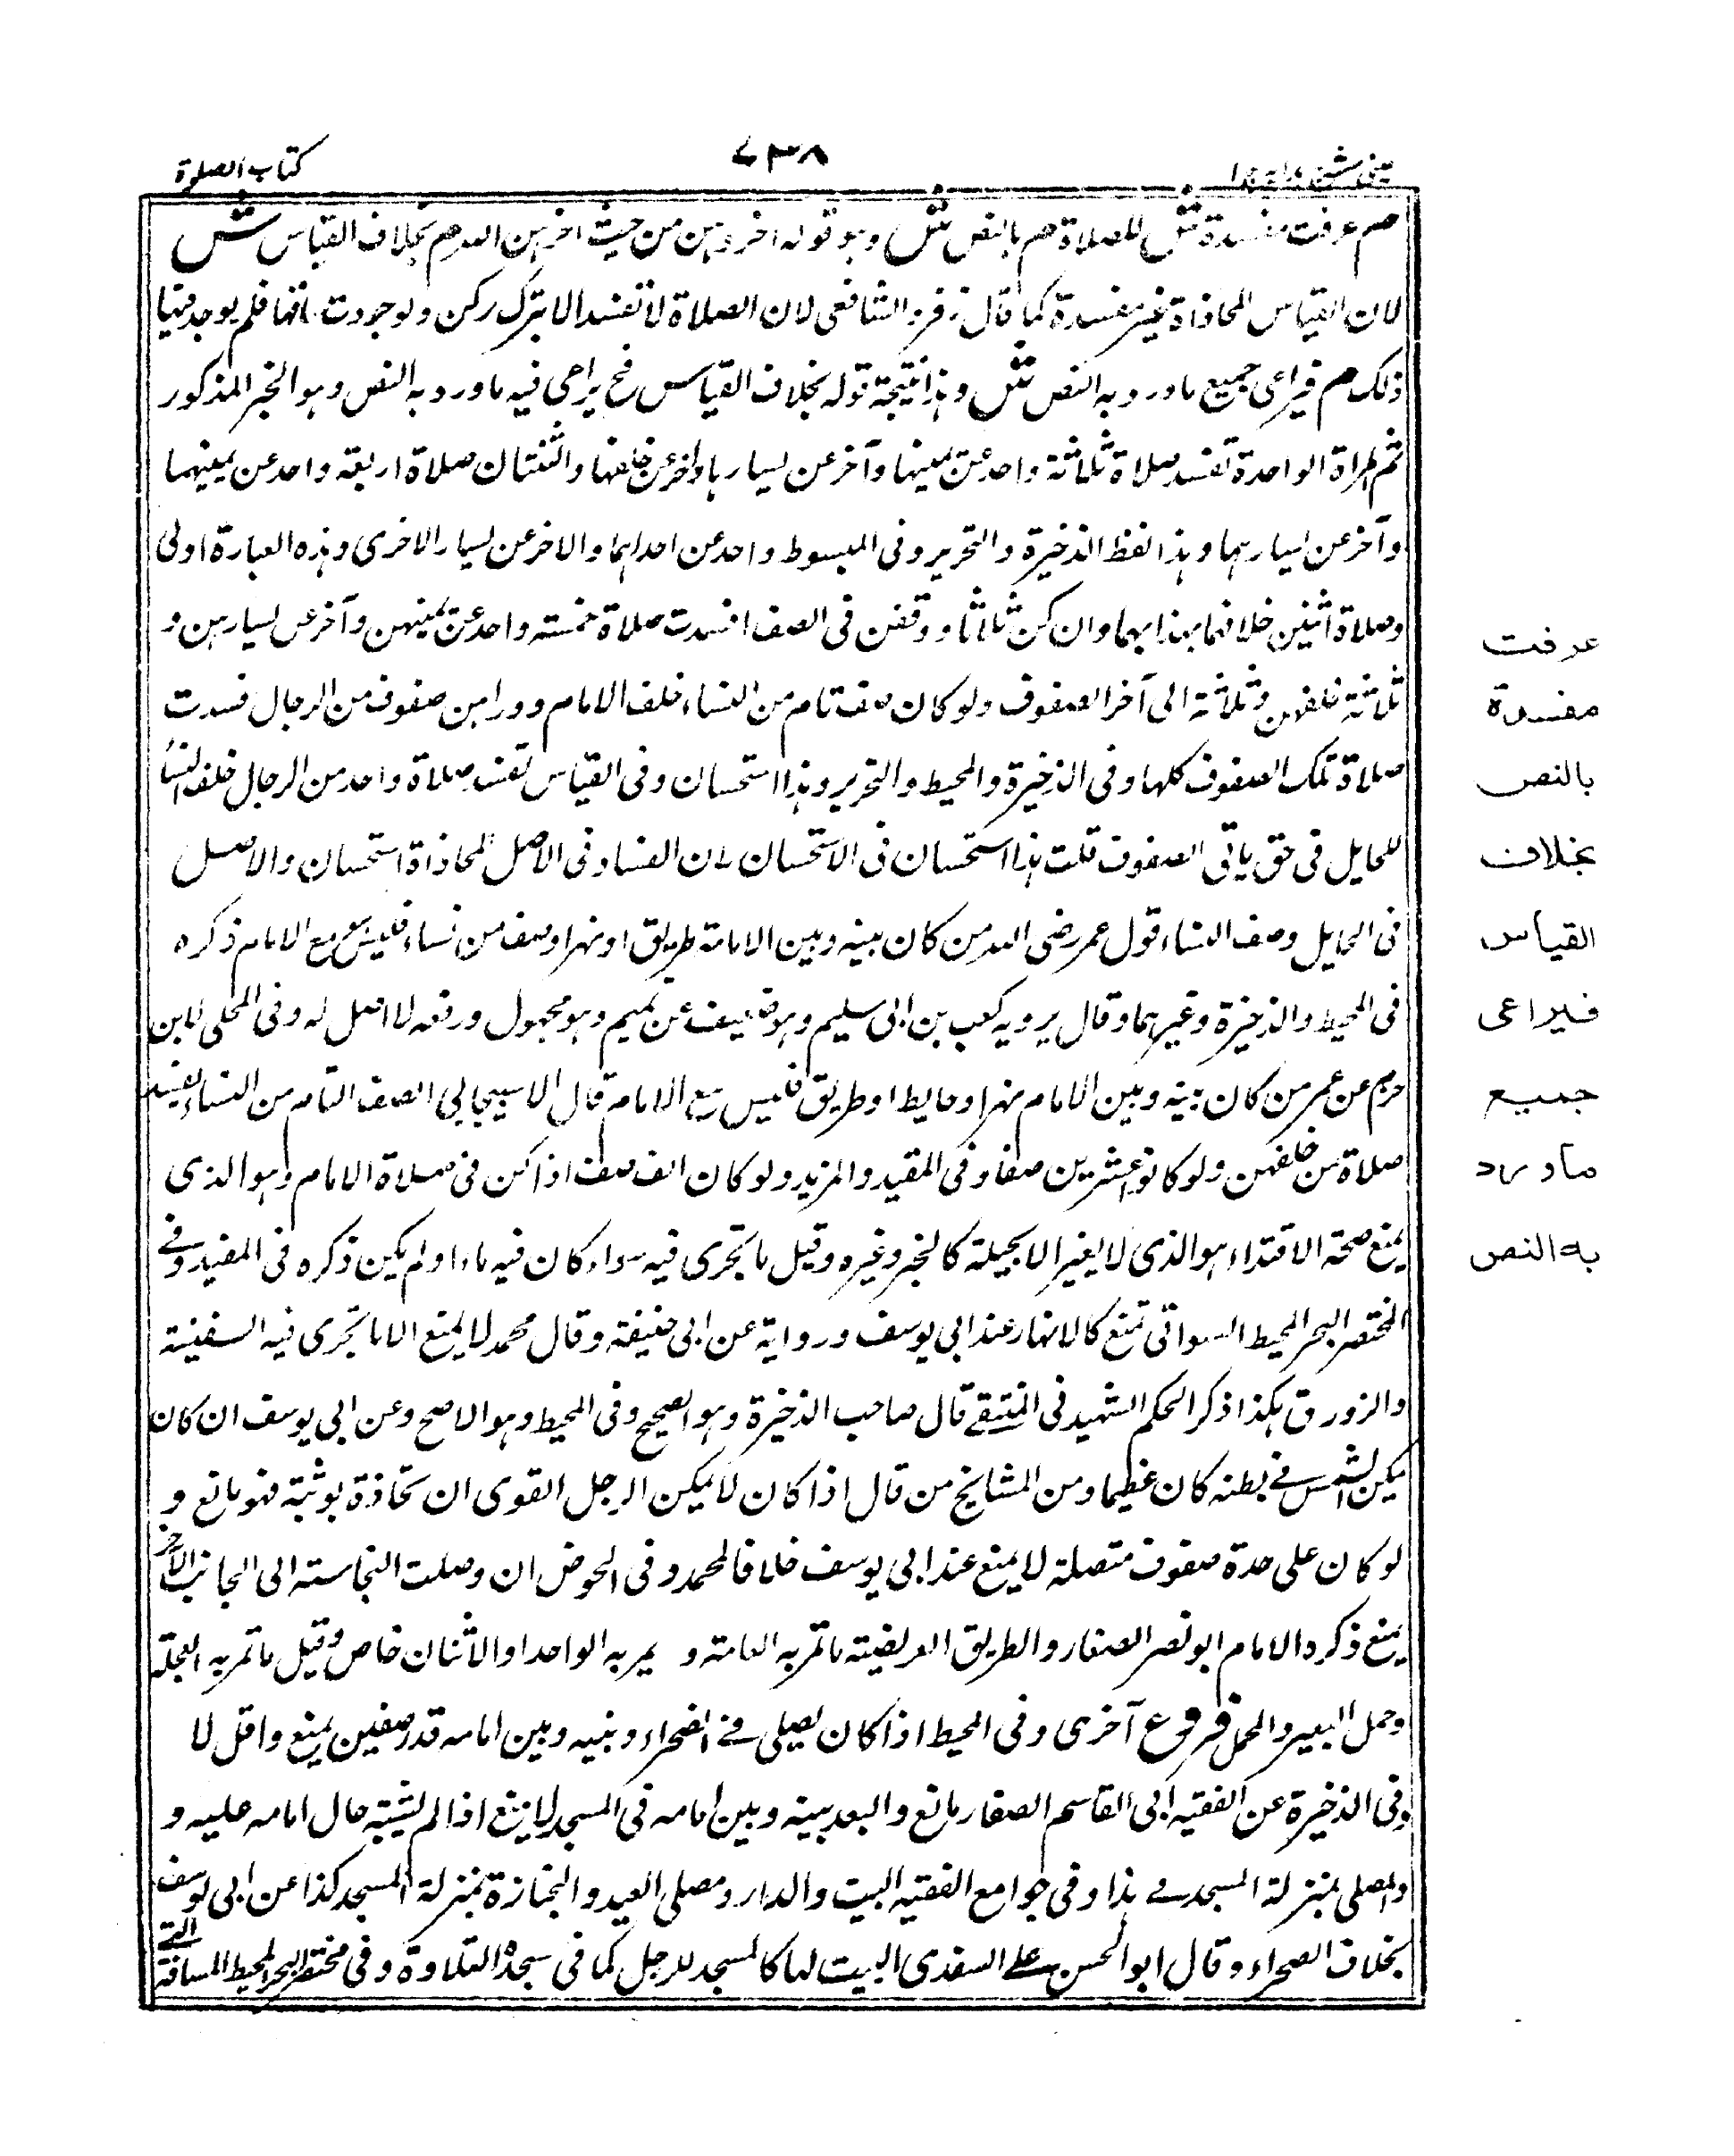 عینی شرح هدایه ج ۱
۷۳۸
کتاب الصلوة
صم عرفت مفسدة ش للصلاة م بالنص ش وهو قوله اخروهن من حیث اخرهن الله م بخلاف القیاس ش
لان القیاس المحاذاة غیر مفسدة کما قال زفر والشافعی لان الصلاة لا تفسد الا بترک رکن ولوجودت فلم یوجد فیها
ذلک م فیراعی جمیع ما ورد به النص ش وهذا نتیجة قوله بخلاف القیاس فح یراعی فیه ما ورد به النص وهو الخبر المذکور
ثم المراة الواحدة تفسد صلاة ثلاثة واحد عن یمینها وآخر عن یسارها وآخر عن خلفها والثنتان صلاة اربعة واحد عن یمینهما
وآخر عن یسارهما وهذا لفظ الذخیرة والتحریر وفی المبسوط واحد عن احداهما والاخر عن یسار الاخری وهذه العبارة اولی
وصلاة اثنین خلافهما بهذا بهما وان کن ثلاثا ووقفن فی الصف افسدت صلاة خمسة واحد عن یمینهن وآخر عن یسارهن و
ثلاثة خلفهن وثلاثة الی آخر الصفوف ولو کان صف تام من النساء خلف الامام وورا هن صفوف من الرجال فسدت
صلاة تلک الصفوف کلها وفی الذخیرة والمحیط والتحریر وهذا استحسان وفی القیاس تفسد صلاة واحد من الرجال خلف النساء
للحایل فی حق باقی الصفوف قلت هذا استحسان فی الاستحسان لان الفساد فی الاصل للمحاذاة استحسان والاصل
فی الحایل وصف النساء قول عمر رضی الله من کان بینه وبین الامامة طریق او نهر او صف من نساء فلیس هو مع الامام ذکره
فی المحیط والذخیرة وغیرهما وقال یرویه کعب بن ابی سلیم وهو ضعیف عن تمیم وهو مجهول ورفعه لا اصل له وفی المحلی لابن
حزم عن عمر من کان بینه وبین الامام نهر او حایط او طریق فلیس مع الامام قال الاسبیجابی الصف التام من النساء یفسد
صلاة من خلفهن ولو کانوا عشرین صفا وفی المقید والمزید ولو کان الف صف اذا کن فی صلاة الامام وهو الذی
یمنع صحة الاقتداء هو الذی لا یغیر الا بحیلة کالخبر وغیره وقیل ما تجری فیه سواء کان فیه ماء او لم یکن ذکره فی المفید وفی
المختصر البحر المحیط السواقی تمنع کالانهار عند ابی یوسف وروایة عن ابی حنیفة وقال محمد لا یمنع الا ما تجری فیه السفینة
والزورق هکذا ذکر الحکم الشهید فی المنتقی قال صاحب الذخیرة وهو الصحیح وفی المحیط وهو الاصح وعن ابی یوسف ان کان
یمکن المشی فی بطنه کان عظیما ومن المشایخ من قال اذا کان لا یمکن الرجل القوی ان تحاذة بوثبة فهو مانع و
لو کان علی حدة صفوف متصلة لا یمنع عند ابی یوسف خلافا لمحمد وفی الحوض ان وصلت النجاسته الی الجانب الآخر
یمنع ذکره الامام ابو نصر الصفار والطریق العریضیة ما تمر به العامة و یمر به الواحد او الاثنان خاص وقیل ما تمر به العجلة
وحمل البعیر والمحمل فروع آخری وفی المحیط اذا کان یصلی فی الصحراء وبینه وبین امامه قدر صفین یمنع واقل لا
وفی الذخیرة عن الفقیه ابی القاسم الصفار مانع والبعد بینه وبین امامه فی المسجد لا یمنع اذا لم یشتبه حال امامه علیه و
والمصلی بمنزلة المسجد فی هذا وفی جوامع الفقیه البیت والدار ومصلی العید والجنازة بمنزلة المسجد کذا عن ابی یوسف
بخلاف الصحراء وقال ابو الحسن علی السغدی البیت لها کالمسجد للرجل کما فی سجدة التلاوة وفی مختصر البحر المحیط المسافة التی
عرفت
مفسدة
بالنص
بخلاف
القیاس
فیراعی
جمیع
ماورد
به النص